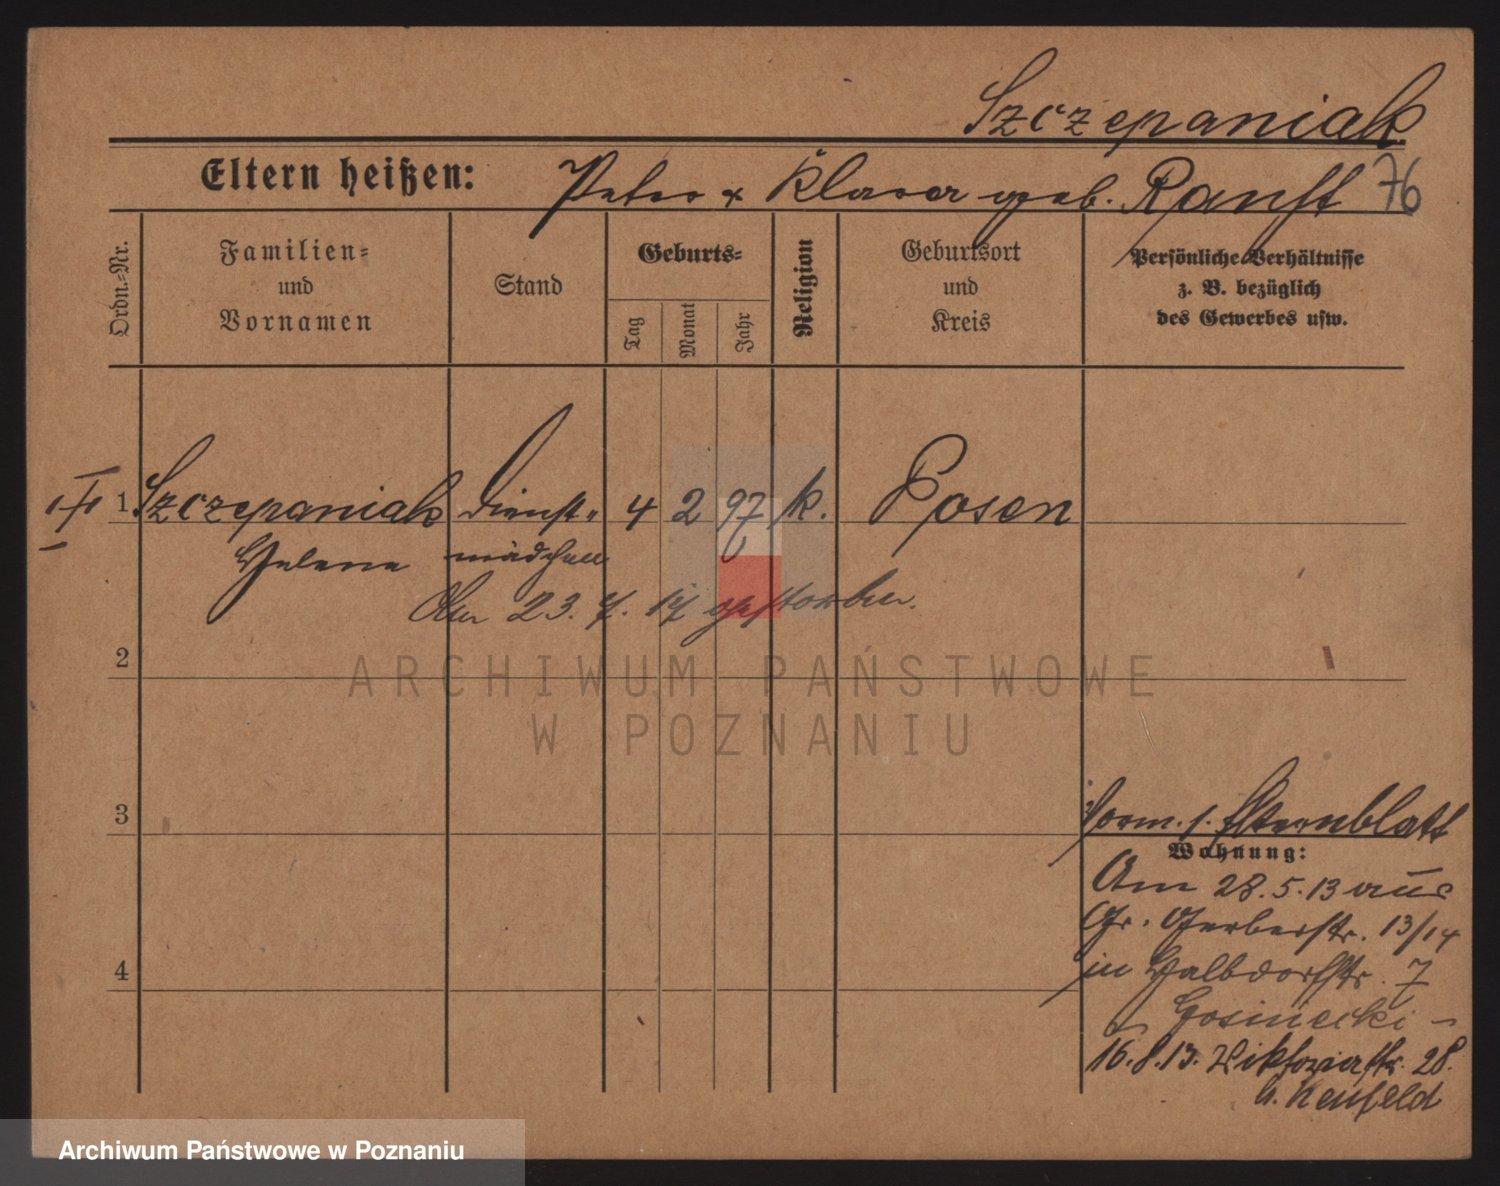 Szczepaniak
Eltern heißen: Peter & Klara geb. Ranft 76
Ordn.-Nr.
Familien-
und
Vornamen
Stand
Geburts-
Tag
Monat
Jahr
Religion
Geburtsort
und
Kreis
Persönliche Verhältnisse
z. B. bezüglich
des Gewerbes usw.
1 Szczepaniak Dienst- 4 2 97 k. Posen
Helene mädchen
Am 23. 7. 17 gestorben.
2
3
4
Vorm. s. Elternblatt
Wohnung:
Am 28.5.13 aus
Gr. Gerberstr. 13/14
in Halbdorfstr. 7
16.8.13. Viktoriastr. 28.
b. Neufeld
ARCHIWUM PAŃSTWOWE
W POZNANIU
Archiwum Państwowe w Poznaniu